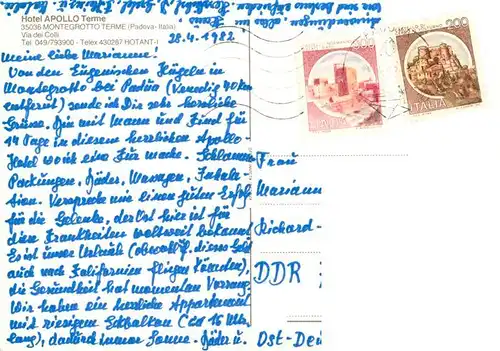 Hotel APOLLO Terme
35036 MONTEGROTTO TERME (Padova - Italia)
Via dei Colli
Tel. 049/793900 - Telex 430267 HOTANT-I
28.4.1982
Meine liebe Marianne!
Von den Eugenischen Hügeln in
Montegrotto bei Padua (Venedig 40 km
entfernt) sende ich Dir sehr herzliche
Grüsse. Bin mit Mann und Kind für
14 Tage in diesem herrlichen Apollo-
Hotel wo ich eine Kur mache. Schlamm
Packungen, Bäder, Massagen, Inhala
tion. Verspreche mir einen guten Erfolg
für die Gelenke, der Ort hier ist für
diese Krankheiten weltweit bekannt
Es ist unser Urlaub (obwohl f. dieses Geld
auch nach Kalifornien fliegen könnten),
die Gesundheit hat momentan Vorrang.
Wir haben ein herrliche Appartement
mit riesigem Eckbalkon (ca 16 Mtr.
lang), dadurch immer Sonne. Bäder u.
200
ITALIA
Frau
Mariann
Richard-
DDR
Ost-Deu